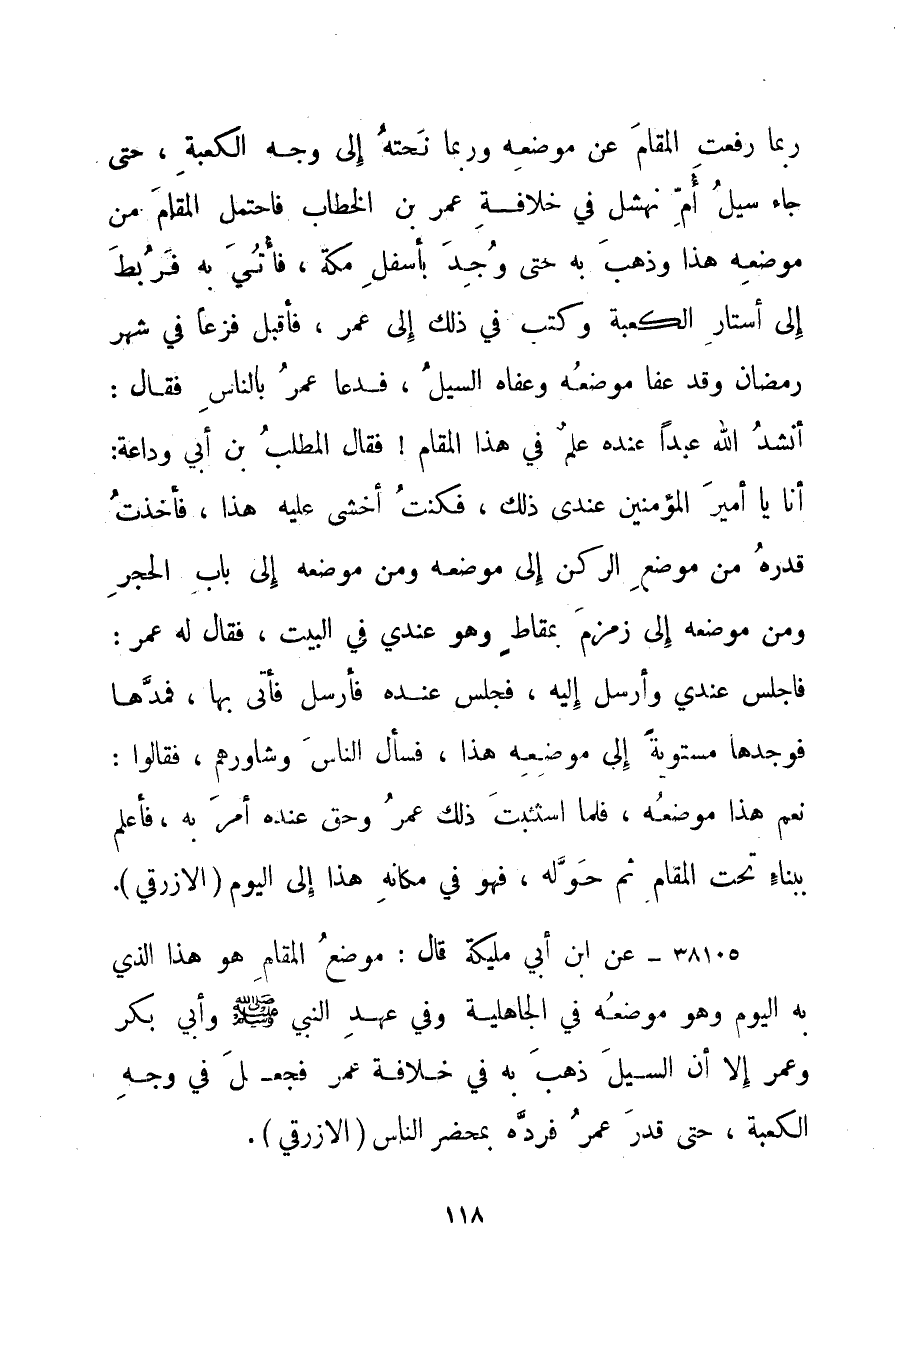 ربما رفعتِ المقامَ عن موضعِه وربما نَحتهُ إلى وجـه الكعبةِ ، حتى
جاء سيلُ أُمِّ نهشل في خلافـةِ عمر بن الخطاب فاحتمل المقامَ من
موضعِه هذا وذهبَ به حتى وُجِدَ بأسفلِ مكةَ ، فأُتُيَ به فَرُبطَ
إلى أستارِ الكعبة وكتب في ذلك إلى عمر ، فأقبل فزعاً في شهر
رمضان وقد عفا موضعُه وعفاه السيلُ ، فـدعا عمرُ بالناسِ فقـال :
أنشدُ الله عبداً عنده علمٌ في هذا المقام ! فقال المطلبُ بن أبي وداعة:
أنا يا أميرَ المؤمنين عندى ذلك ، فكنتُ أخشى عليه هذا ، فأخذتُ
قدرهُ من موضعِ الركن إلى موضعـه ومن موضعه إلى بابِ الحجرِ
ومن موضعه إلى زمزمَ بمقاطٍ وهو عندي في البيت ، فقال له عمر :
فاجلس عندي وأرسل إليه ، فجلس عنـده فأرسل فأتى بها ، فمدَّهـا
فوجدها مستويةً إلى موضِعِـه هذا ، فسأل الناسَ وشاورهم ، فقالوا :
نعم هذا موضعُـه ، فلما استثبتَ ذلك عمرُ وحق عنده أمرَ به ، فأعلم
ببناءِ تحت المقامِ ثم حَوَّله ، فهو في مكانهِ هذا إلى اليوم (الازرقي).
٣٨١٠٥ ـ عن ابن أبي مليكة قال : موضعُ المقامِ هو هذا الذي
به اليوم وهو موضعُـه في الجاهليـة وفي عهـدِ النبي ﷺ وأبي بكر
وعمر إلا أن السـيلَ ذهبَ به في خـلافـة عمر فجعـلَ في وجـهِ
الكعبة ، حتى قدرَ عمرُ فردَّه بمحضر الناس (الازرقي) .
١١٨